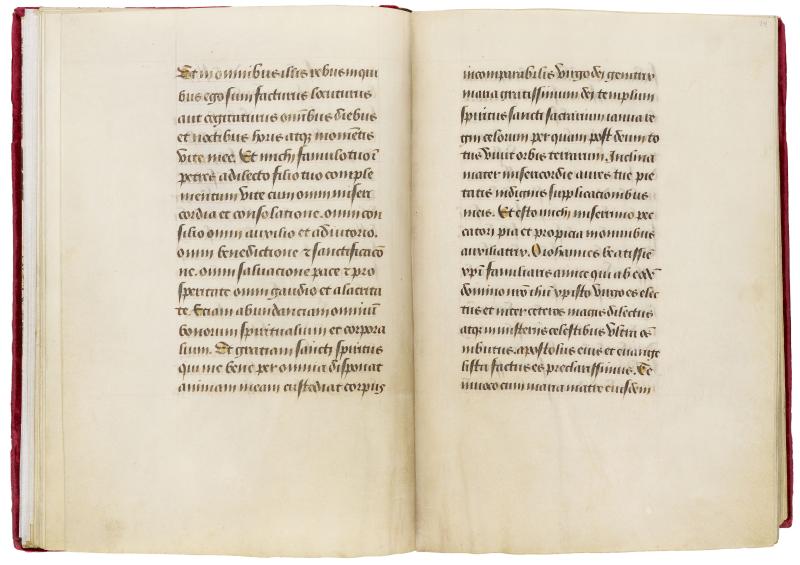 Et in omnibus illis rebus in qui
bus ego sum facturus locuturus
aut cogitaturus omībus diebus
et noctibus horis atqꝫ momētis
vite mee. Et michi famulo tuo ī
petres a dilecto filio tuo comple
mentum vite cum omni miseri
cordia et consolatione. omni con
silio omni auxilio et adiutorio.
omni benedictione ⁊ sanctificacō
ne. omni saluacione pace ⁊ pro
speritate omni gaudio et alacrita
te. Etiam abundanciam omniū
bonorum spiritualium et corpora
lium. Et gratiam sancti spiritus
qui me bene per omnia disponat
animam meam custodiat corpus
incomparabilis virgo dei genitrix
maria gratissimum dei templum
spiritus sancti sacrarium ianua re
gni celorum per quam post deum to
tus viuit orbis terrarum. Inclina
mater misericordie aures tue pie
tatis indignis supplicacionibus
meis. Et esto michi miserrimo pec
catori pia et propicia in omnibus
auxiliatrix. O iohannes beatissīe
xpī familiaris amice qui ab eodē
domino nrō ihū xpisto virgo es elec
tus et inter ceteros magis dilectus
atqꝫ in misteriis celestibus vltra oē
nibutus. apostolus eius et euange
lista factus es preclarissimus. Te
inuoco cum maria matre eiusdem
24